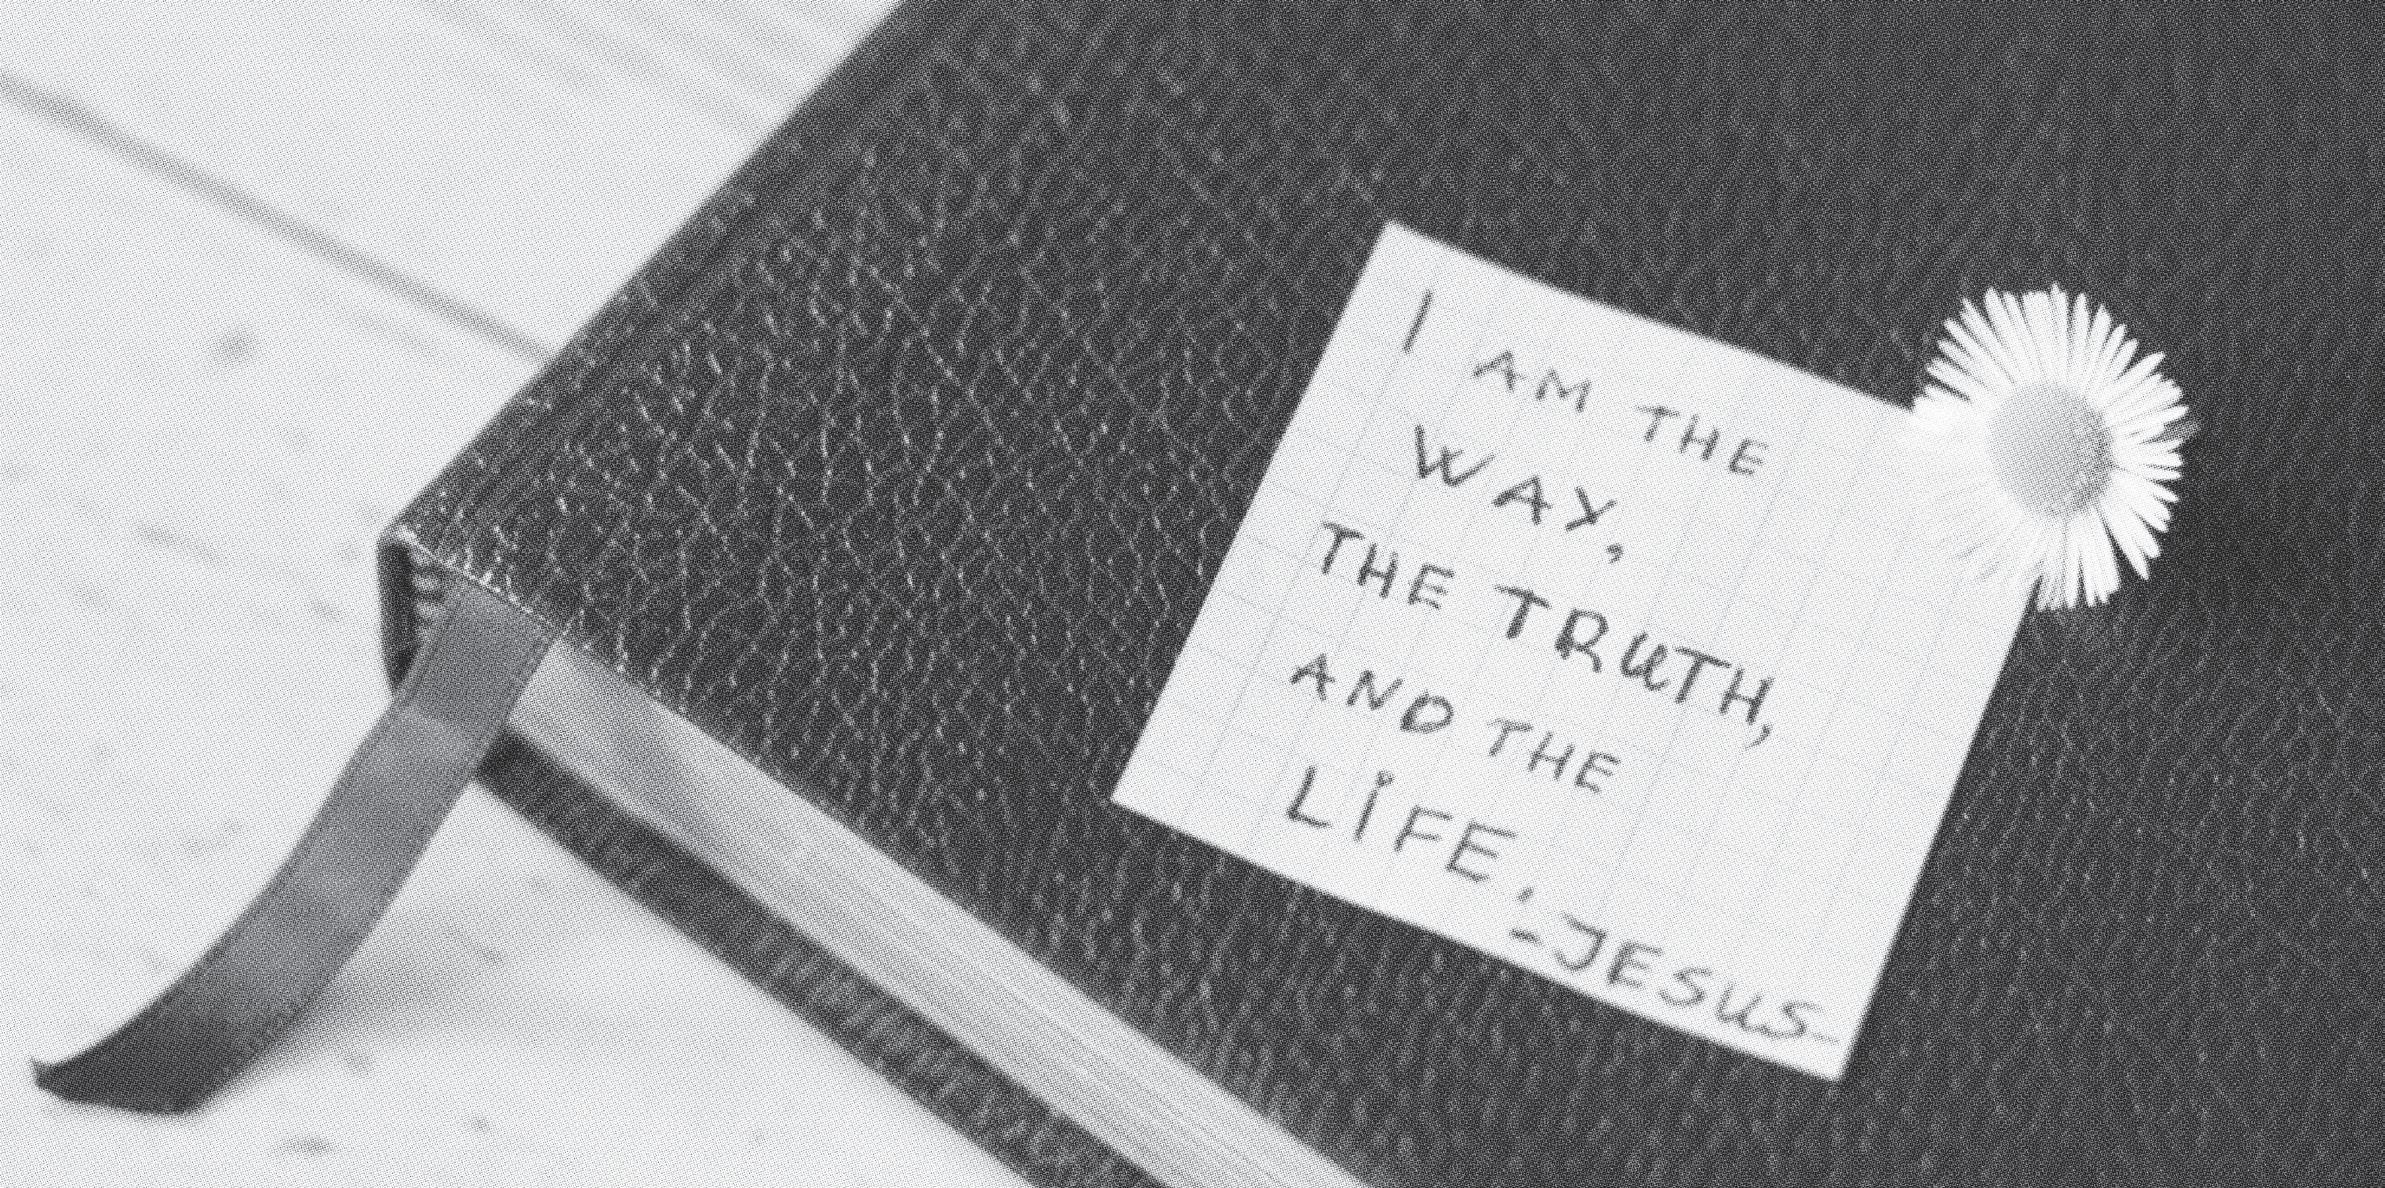 I AM THE
WAY,
THE TRUTH,
AND THE
LiFE,
-JESUS-